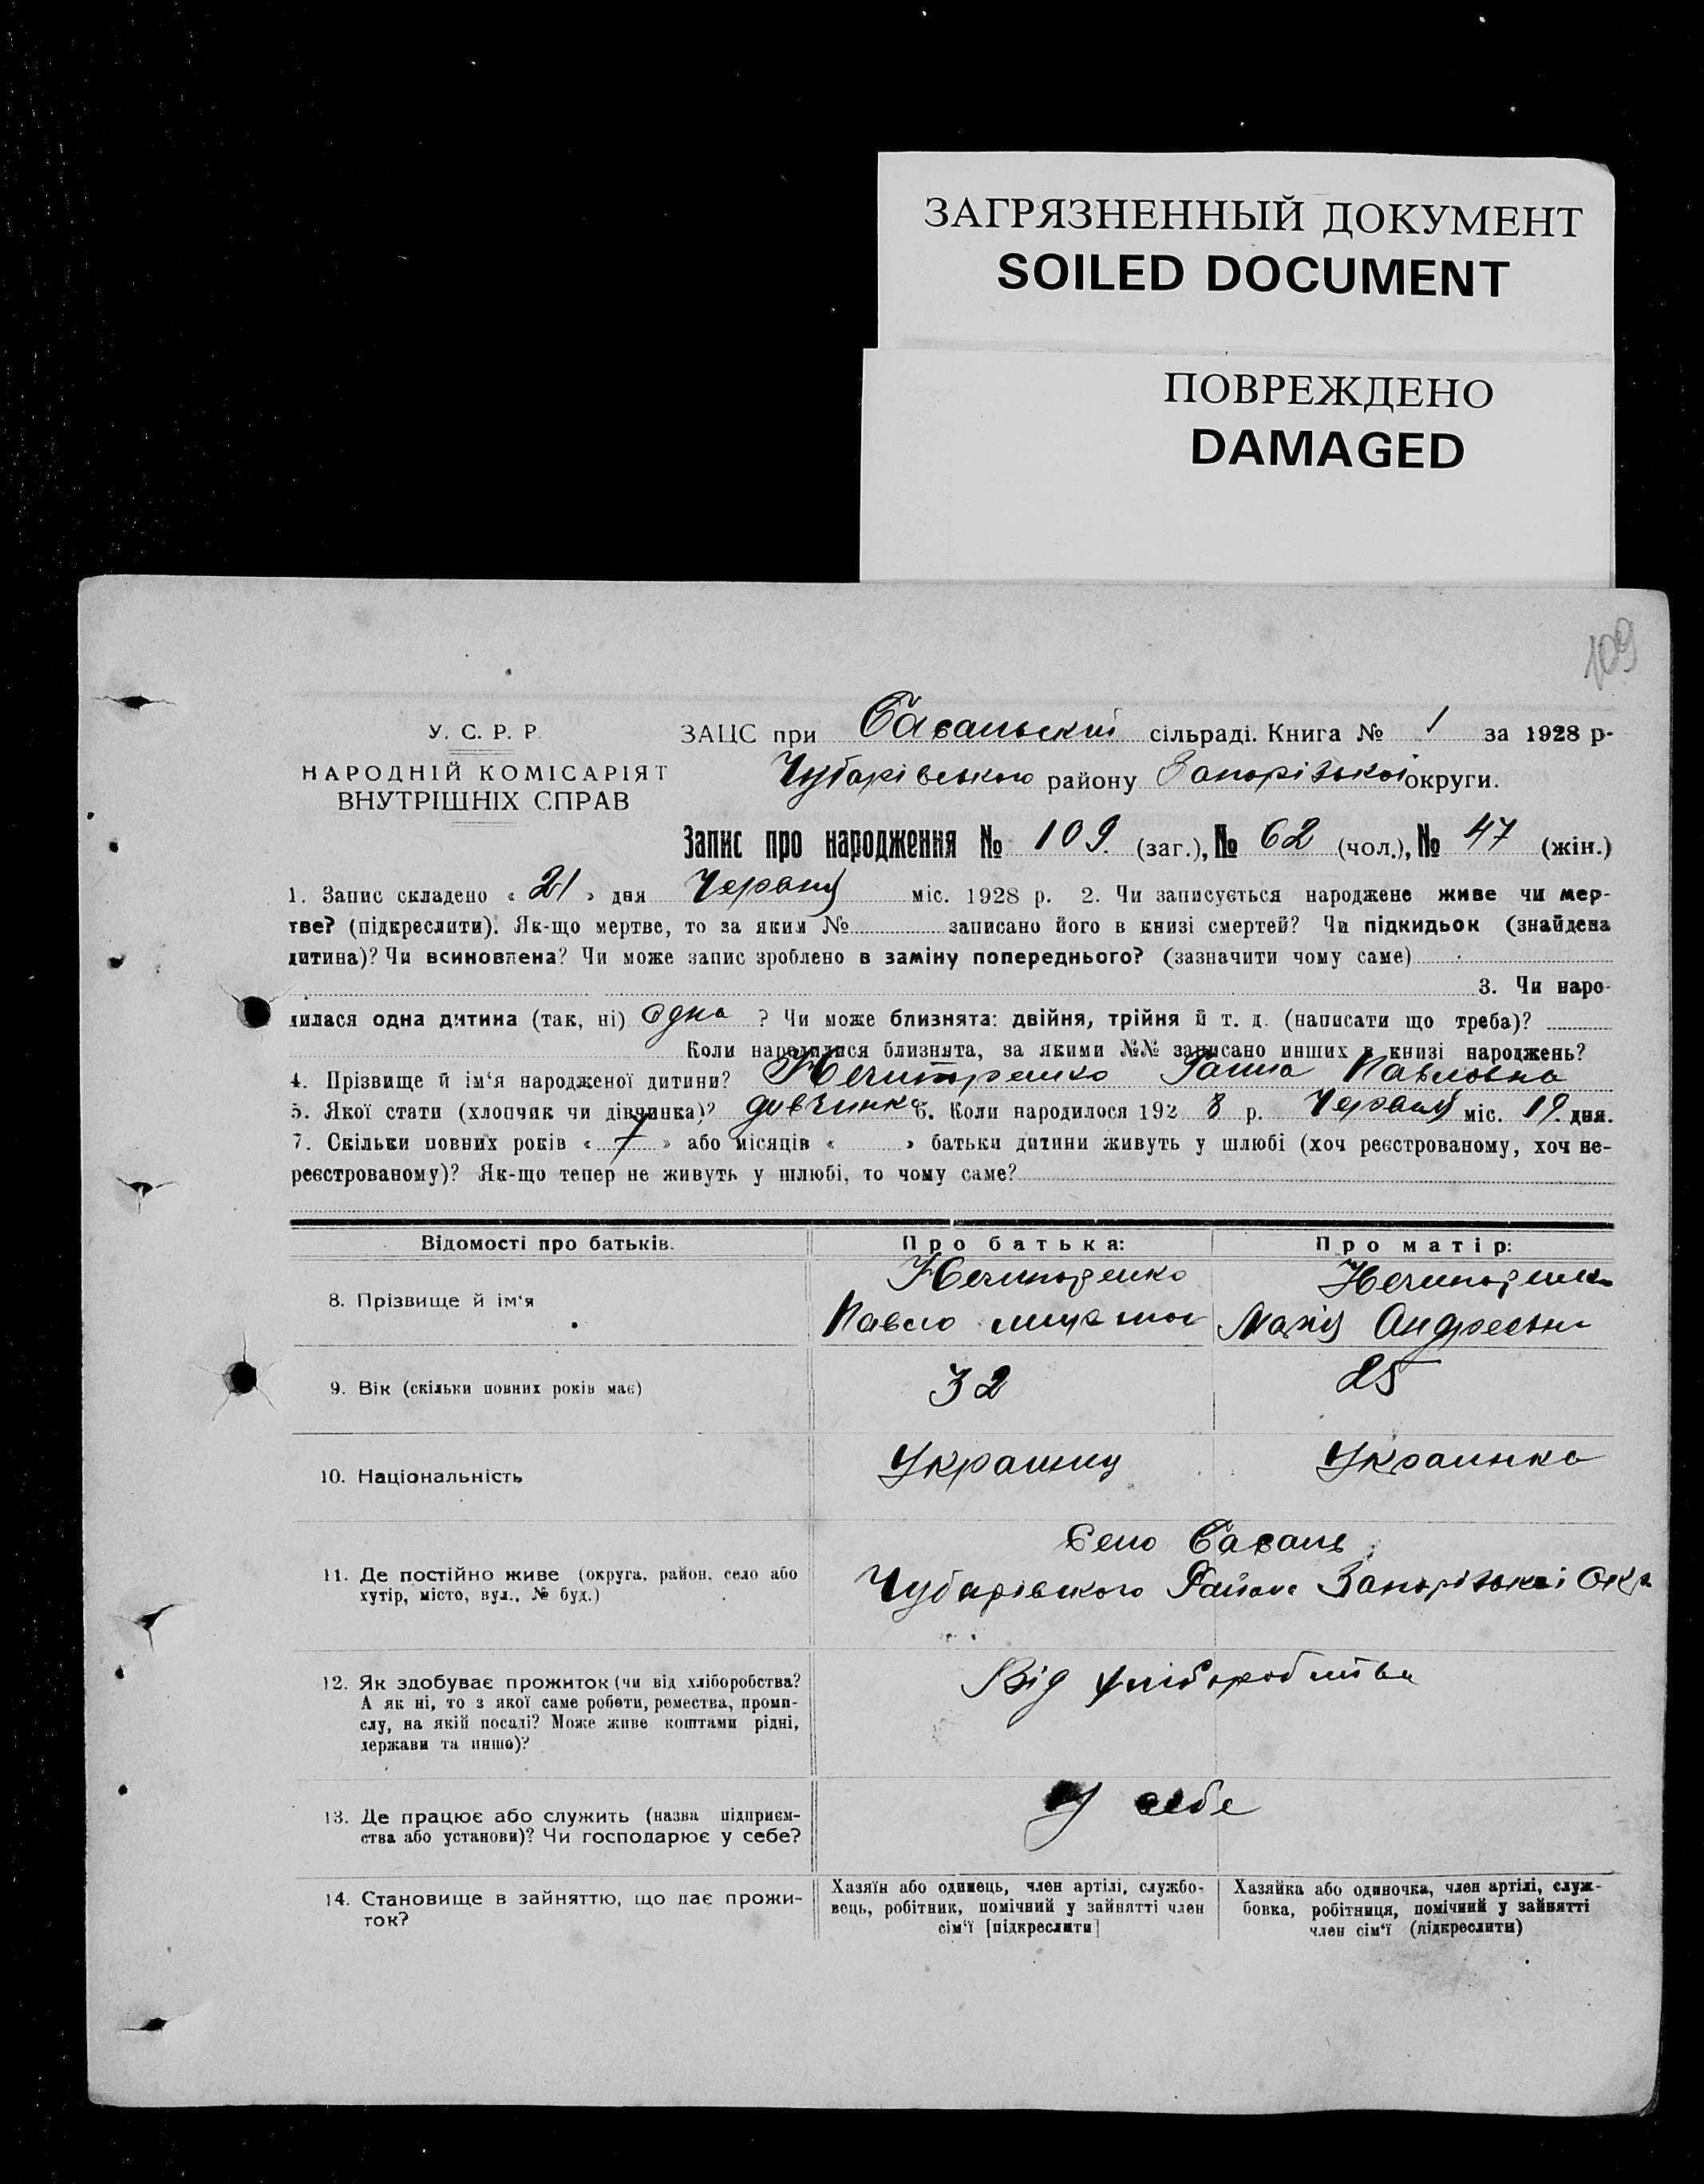 ЗАГРЯЗНЕННЫЙ ДОКУМЕНТ
SOILED DOCUMENT
ПОВРЕЖДЕНО
DAMAGED
109
У. С. Р. Р.
НАРОДНІЙ КОМІСАРІЯТ
ВНУТРІШНІХ СПРАВ
ЗАЦС при Басанський сільраді. Книга № 1 за 1928 р.
Чубарівського району Запорізької округи.
Запис про народження № 109. (заг.), № 62 (чол.), № 47 (жін.)
1. Запис складено « 21 » дня Червня міс. 1928 р. 2. Чи записується народжене живе чи мер-
тве? (підкреслити). Як-що мертве, то за яким № записано його в книзі смертей? Чи підкидьок (знайдена
дитина)? Чи всиновлена? Чи може запис зроблено в заміну попереднього? (зазначити чому саме)
3. Чи наро-
дилася одна дитина (так, ні) одна ? Чи може близнята: двійня, трійня й т. д. (написати що треба)?
Коли народилися близнята, за якими №№ записано инших в книзі народжень?
4. Прізвище й ім‘я народженої дитини? Нечипоренко Ганна Павловна
5. Якої стати (хлопчяк чи дівчинка)? дивчинка 6. Коли народилося 192 8 р. Червня міс. 19. дня.
7. Скільки повних років « 7 » або місяців « » батьки дитини живуть у шлюбі (хоч реєстрованому, хоч не-
реєстрованому)? Як-що тепер не живуть у шлюбі, то чому саме?
Відомості про батьків. Про батька: Про матір:
8. Прізвище й ім‘я Нечипоренко Павло Нечипоренко Мария Андреевна
9. Вік (скільки повних років має) 32 25
10. Національність Украинец Украинка
11. Де постійно живе (округа, район, село або
хутір, місто, вул., № буд.)
Село Басань
Чубарівского Району Запорізької Окр
12. Як здобуває прожиток (чи від хліборобства?
А як ні, то з якої саме роботи, ремества, проми-
слу, на якій посаді? Може живе коштами рідні,
держави та инше)?
Від хліборобства
13. Де працює або служить (назва підприєм-
ства або установи)? Чи господарює у себе?
У себе
14. Становище в зайняттю, що дає прожи-
ток?
Хазяїн або одинець, член артілі, службо-
вець, робітник, помічний у зайнятті член
сім‘ї [підкреслити]
Хазяйка або одиночка, член артілі, служ-
бовка, робітниця, помічний у зайнятті
член сім‘ї (підкреслити)